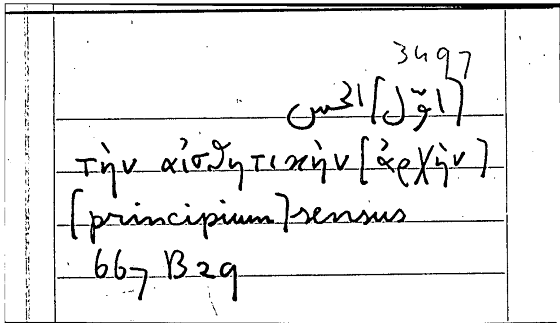 3497
[اوّل] الحس
τὴν αἰσθητικὴν [ἀρχὴν]
[principium] sensus
667 B 29